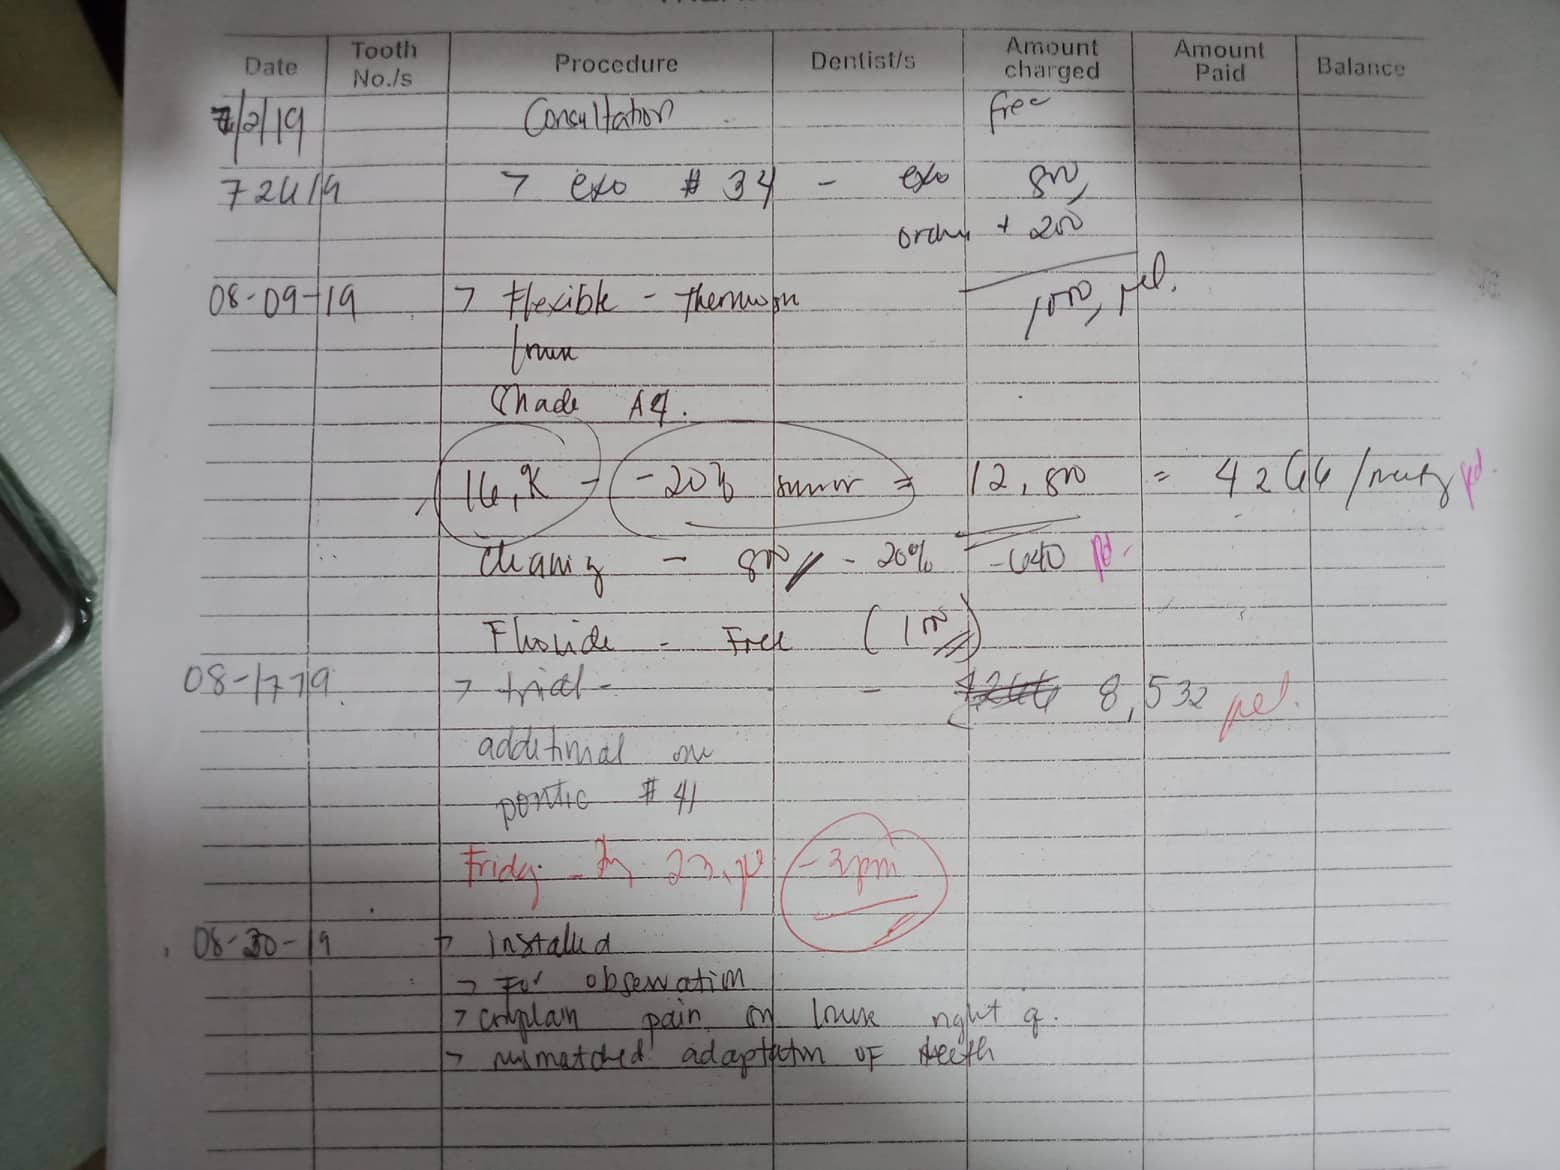 Date Tooth No./s Procedure Dentist/s Amount charged Amount Paid Balance
7/2/19 Consultation free
72419 > exo # 34 - exo 800
+ 200
08-09-19 > Flexible - 1000, pd.
Shade A4.
16,K - -20% = 12,800 = 4266 / pd.
Cleaning - 800 - 20% - 640 pd.
Fluoride - Free
08-1719 > trial - - 8,532 pd.
additional one
pontic # 41
Friday - 23, - 3pm
08-30-19 > Installed
> For observation
> complain pain on lower right q.
> mismatched adaptation of teeth